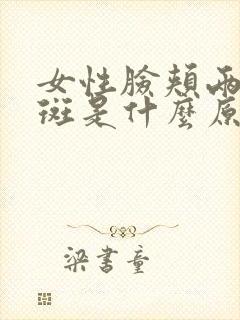 女性臉頰兩
斑是什麼原
梁書童